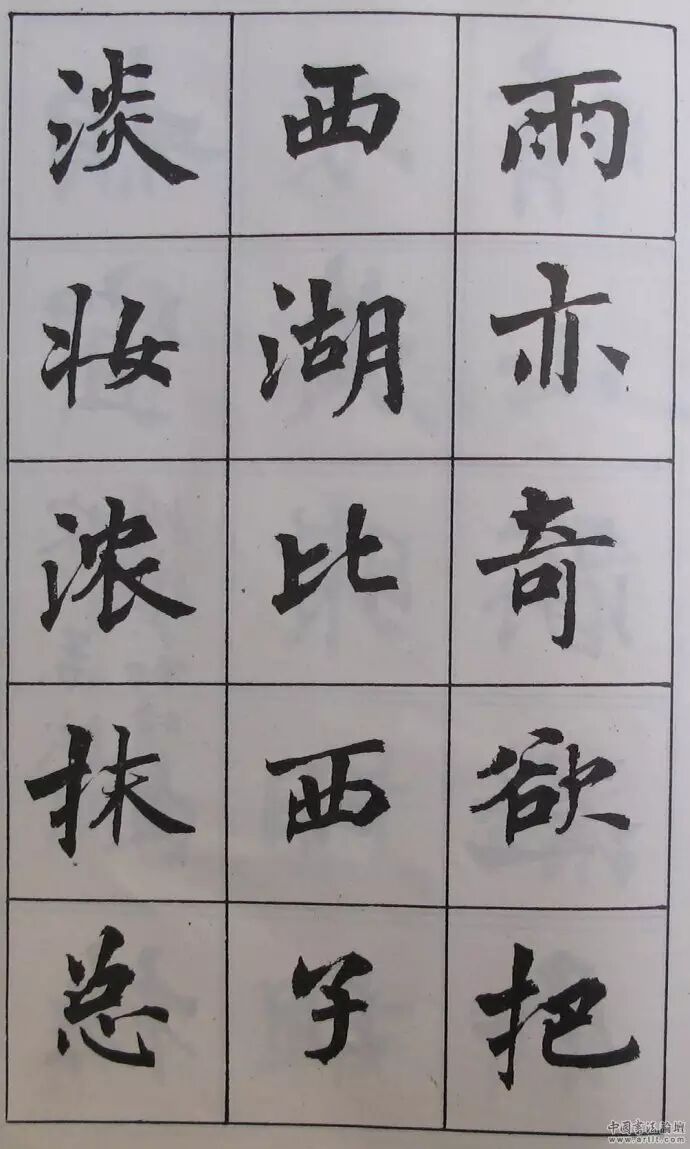 雨亦奇欲把
西湖比西子
淡妆浓抹总
中国书法论坛
www.artlt.com